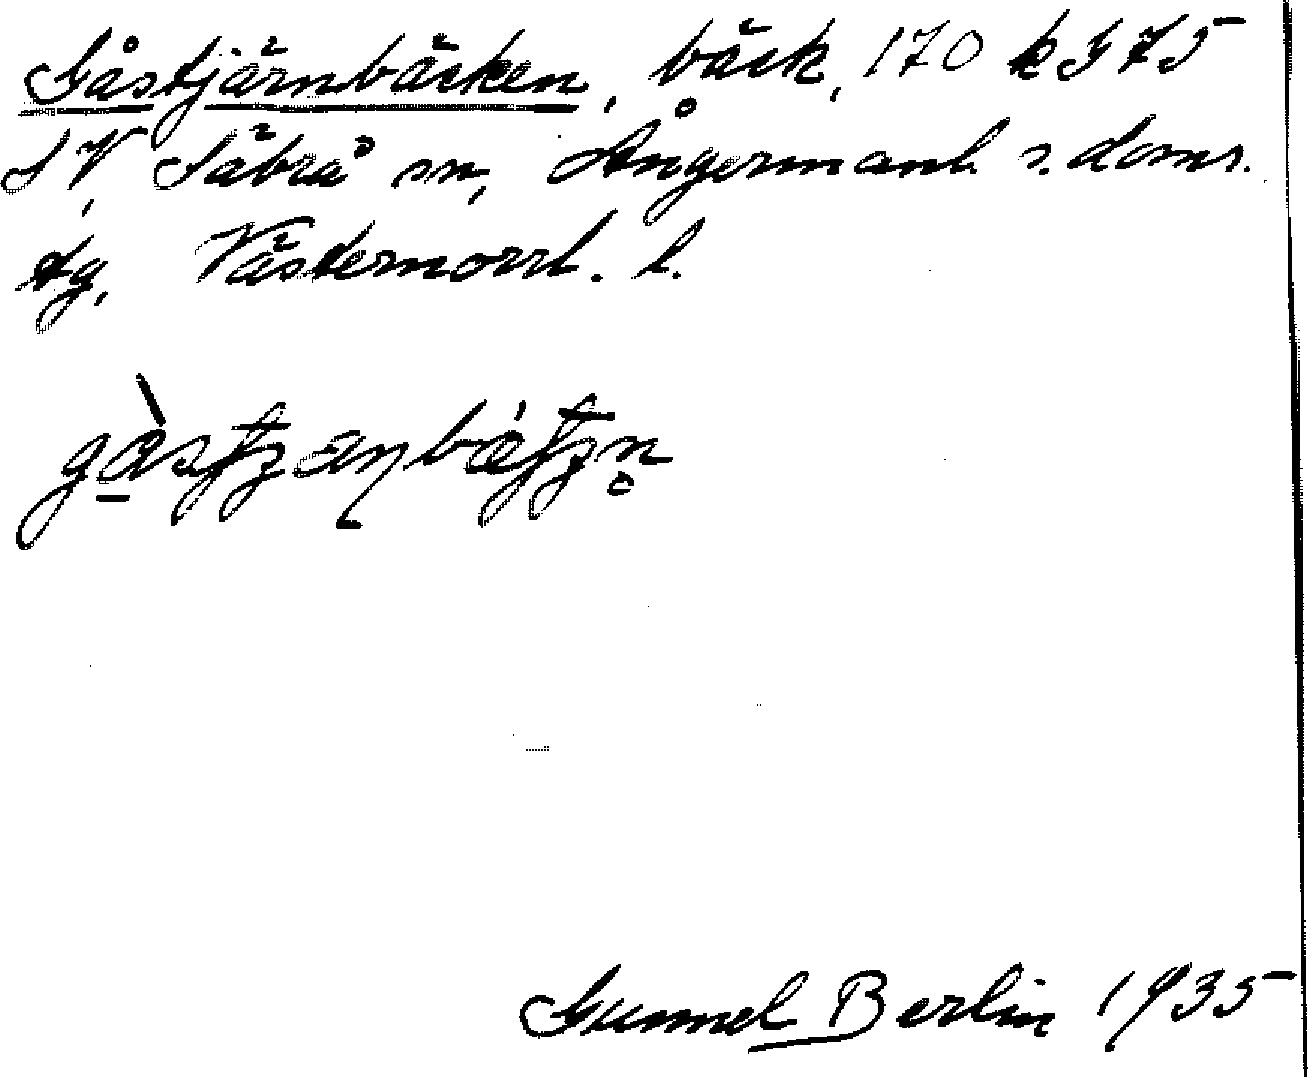 Gåstjärnbäcken, bäck, 170 k I 75
SV, Säbrå sn, Ångermanl. s. doms.
tg, Västernorrl. l.
Gunnel Berlin 1935